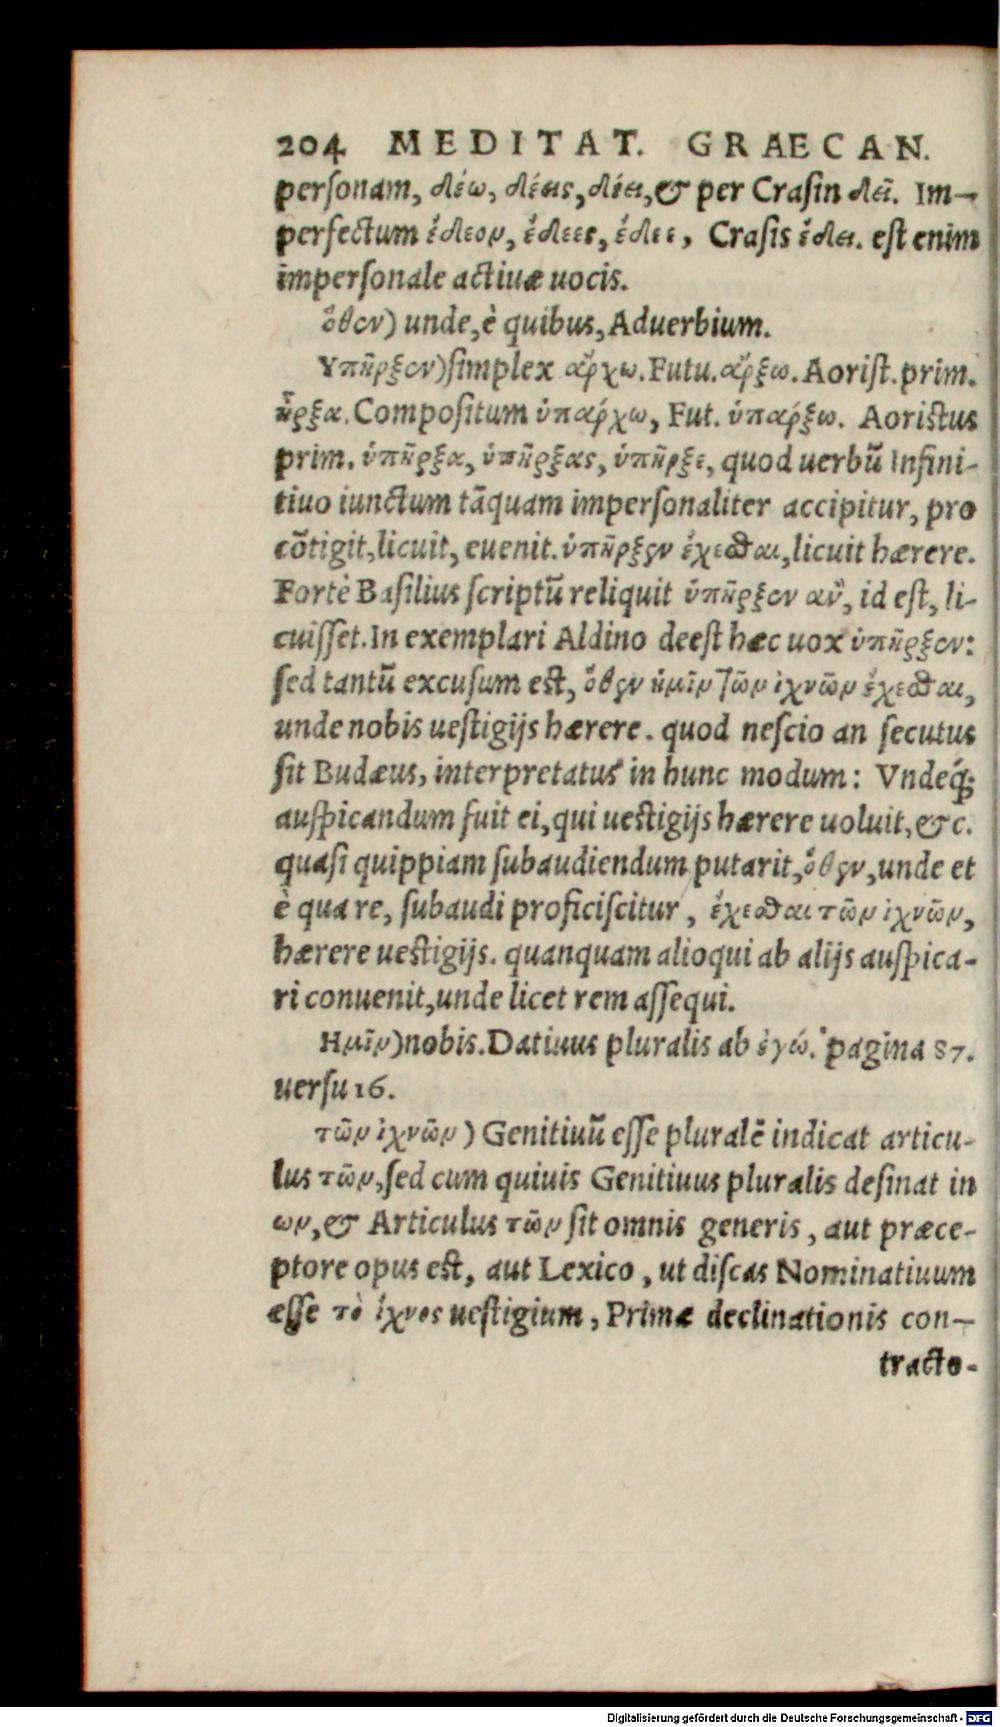 204 MEDITAT. GRAECAN.
personam, δέω, δέεις, δέει, & per Crasin δεῖ. Im-
perfectum ἔδεον, ἔδεες, ἔδεε, Crasis ἔδει. est enim
impersonale actiuæ uocis.
ὅθεν) unde, è quibus, Aduerbium.
Υπῆρξεν) simplex ἄρχω. Futu. ἄρξω. Aorist. prim.
ἦρξα. Compositum ὑπάρχω, Fut. ὑπάρξω. Aoristus
prim. ὑπῆρξα, ὑπῆρξας, ὑπῆρξε, quod uerbũ Infini-
tiuo iunctum tãquam impersonaliter accipitur, pro
cõtigit, licuit, euenit. ὑπῆρξεν ἔχεσθαι, licuit hærere.
Fortè Basilius scriptũ reliquit ὑπῆρξεν ἂν, id est, li-
cuisset. In exemplari Aldino deest hæc uox ὑπῆρξεν:
sed tantũ excusum est, ὅθεν ἡμῖν τῶν ἰχνῶν ἔχεσθαι,
unde nobis uestigijs hærere. quod nescio an secutus
sit Budæus, interpretatus in hunc modum: Vndeq́;
auspicandum fuit ei, qui uestigijs hærere uoluit, &c.
quasi quippiam subaudiendum putarit, ὅθεν, unde et
è qua re, subaudi proficiscitur, ἔχεσθαι τῶν ἰχνῶν,
hærere uestigijs. quanquam alioqui ab alijs auspica-
ri conuenit, unde licet rem assequi.
Ημῖν) nobis. Datiuus pluralis ab ἐγώ. pagina 87.
uersu 16.
τῶν ἰχνῶν) Genitiuũ esse pluralẽ indicat articu-
lus τῶν, sed cum quiuis Genitiuus pluralis desinat in
ων, & Articulus τῶν sit omnis generis, aut præce-
ptore opus est, aut Lexico, ut discas Nominatiuum
esse τὸ ἴχνος uestigium, Primæ declinationis con-
tracto-
Digitalisierung gefördert durch die Deutsche Forschungsgemeinschaft - DFG